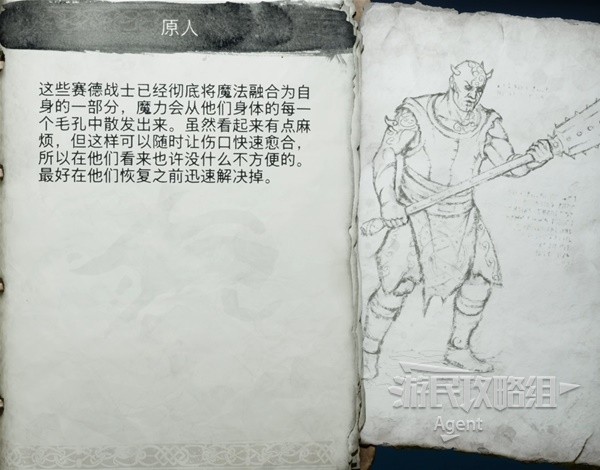 原人
这些赛德战士已经彻底将魔法融合为自
身的一部分，魔力会从他们身体的每一
个毛孔中散发出来。虽然看起来有点麻
烦，但这样可以随时让伤口快速愈合，
所以在他们看来也许没什么不方便的。
最好在他们恢复之前迅速解决掉。
游民攻略组
Agent